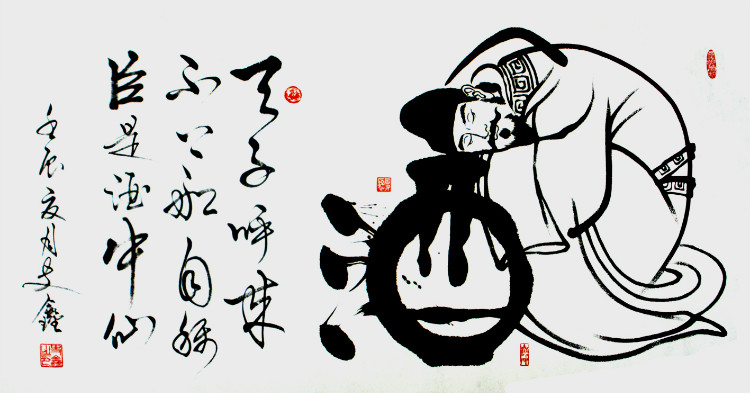 天子呼来
不上船自称
臣是酒中仙
壬辰夏月 鑫